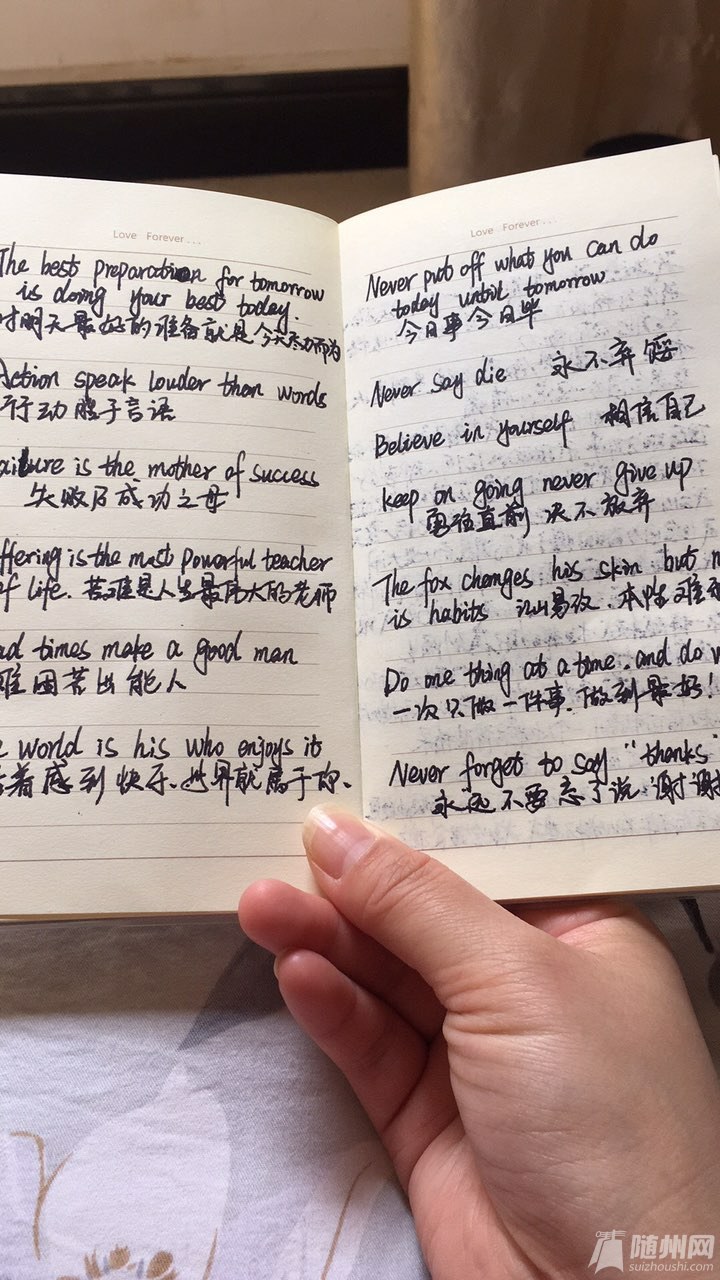 Love Forever...
The best preparation for tomorrow
is doing your best today.
对明天最好的准备就是今天尽力而为
Action speak louder than words
行动胜于言语
ailure is the mother of success
失败乃成功之母
ffering is the most powerful teacher
of life. 苦难是人生最伟大的老师
ad times make a good man
难困苦出能人
e world is his who enjoys it
着感到快乐、世界就属于你、
Love Forever...
Never put off what you can do
today until tomorrow
今日事今日毕
Never say die 永不弃馁
Believe in yourself 相信自己
keep on going never give up
勇往直前 决不放弃
The fox changes his skin but n
is habits 江山易改、本性难移
Do one thing at a time, and do w
一次只做一件事、做到最好!
Never forget to say "thanks"
永远不要忘了说 谢谢
随州网
suizhoushi.com